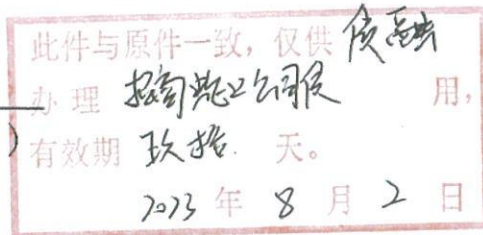 此件与原件一致，仅供 债融
办理 招商蛇口公司债 用，
有效期 玖拾 天。
2023 年 8 月 2 日